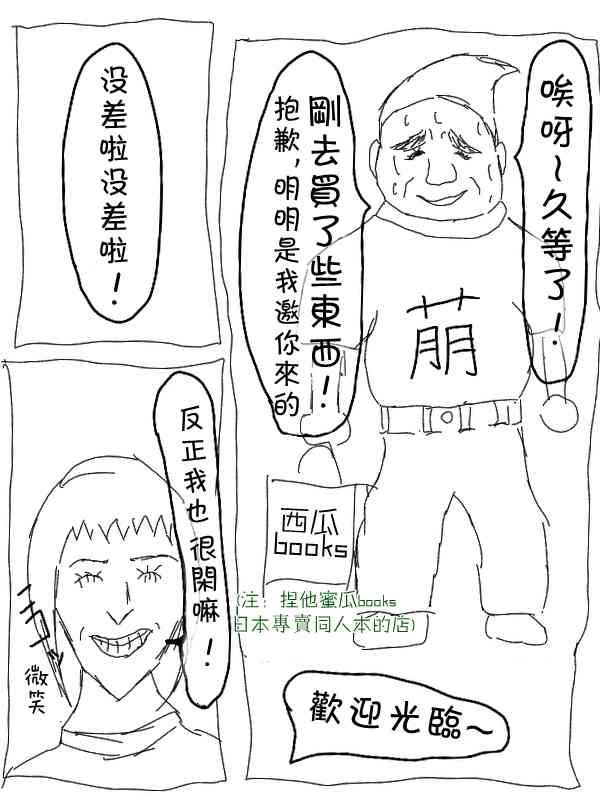 唉呀~久等了！
剛去買了些東西！
抱歉，明明是我邀你來的
萠
西瓜
books
(注：捏他蜜瓜books
日本專賣同人本的店)
歡迎光臨~
没差啦没差啦！
反正我也很閑嘛！
ニコッ
微笑